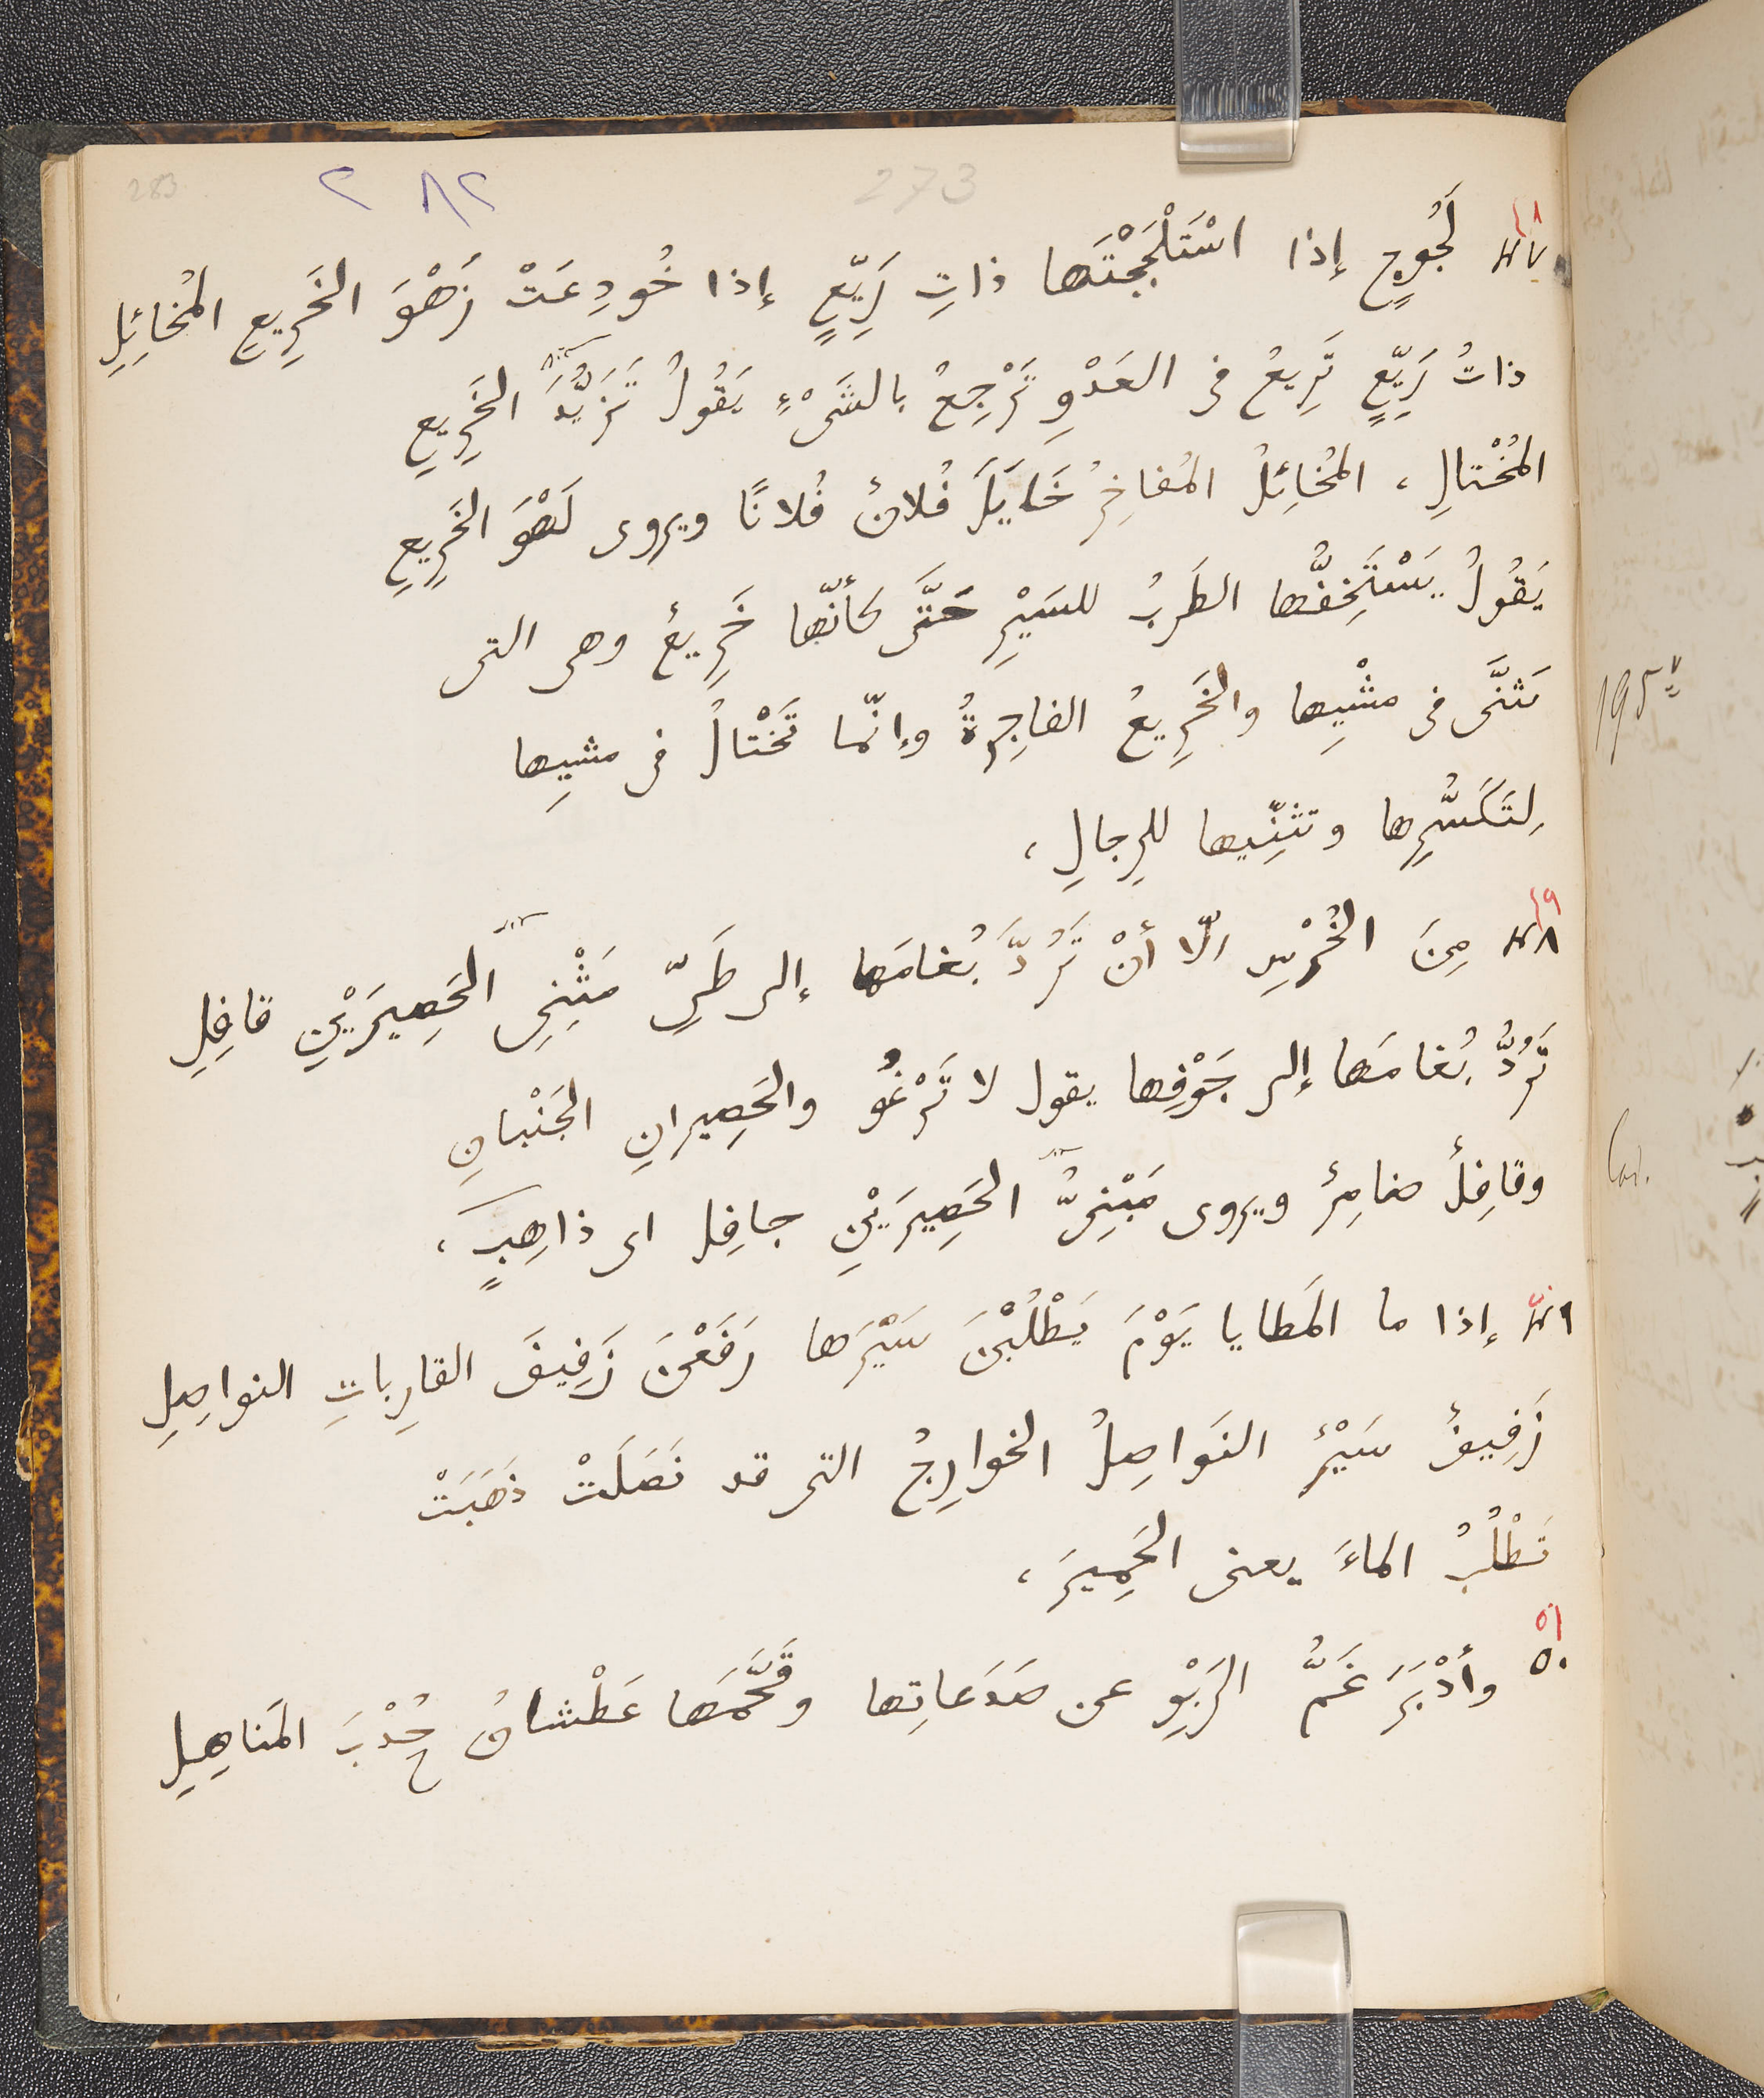 283 ٢ ٢٨٢ 273
٤٨
٤٧ لَجُوجٍ إذا اسْتَلْجَجْتَها ذاتِ رَيِّعٍ إذا خُودِعَتْ زَهْوَ الخَرِيعِ المُخائِلِ
ذاتُ رَيِّعٍ تَرِيعُ فى العَدْوِ تَرْجِعُ بالشَىْءِ يَقُولُ تَزَيُّدَ الخَرِيعِ
المُخْتالِ ، المُخائِلُ المُفاخِرُ خَايَلَ فُلانٌ فُلانًا ويروى لَهْوَ الخَرِيعِ
يَقُولُ يَسْتَخِفُّها الطَرَبُ للسَيْرِ حَتَّى كأنّها خَرِيعٌ وهى التى
تَثَنَّى فى مشْيِها والخَرِيعُ الفاجِرةُ وإنّما تَخْتالُ فى مشيِها
لِتَكَسُّرِها وتثنِّيها للرِجالِ ،
٤٩
٤٨ مِنَ الخُرْسِ الّا أنْ تَرُدَّ بُغامَها إلى طَىِّ مَثْنِىِّ الحَصِيرَيْنِ قافِلِ
تَرُدُّ بُغامَها إلى جَوْفِها يقول لا تَرْغُو والحَصِيرانِ الجَنْبانِ
وقافِلٌ ضامِرٌ ويروى مَبْنِىُّ الحَصِيرَيْنِ جافِل اى ذاهِبٍ ،
٤٩ إذا ما المَطايا يَوْمَ يَطْلُبْنَ سَيْرَها رَفَعْنَ زَفِيفَ القارِباتِ النواصِلِ
زَفِيفٌ سَيْرٌ النَواصِلُ الخوارِجُ التى قد نَصَلَتْ ذَهَبَتْ
تَطْلُبُ الماءَ يعنى الحَمِيرَ ،
٥١
٥٠ وأدْبَرَ غَمُّ الرَبْوِ عن صَدَعاتِها وقَحَّمَها عَطْشانُ جُدْبَ المَناهِلِ
195v